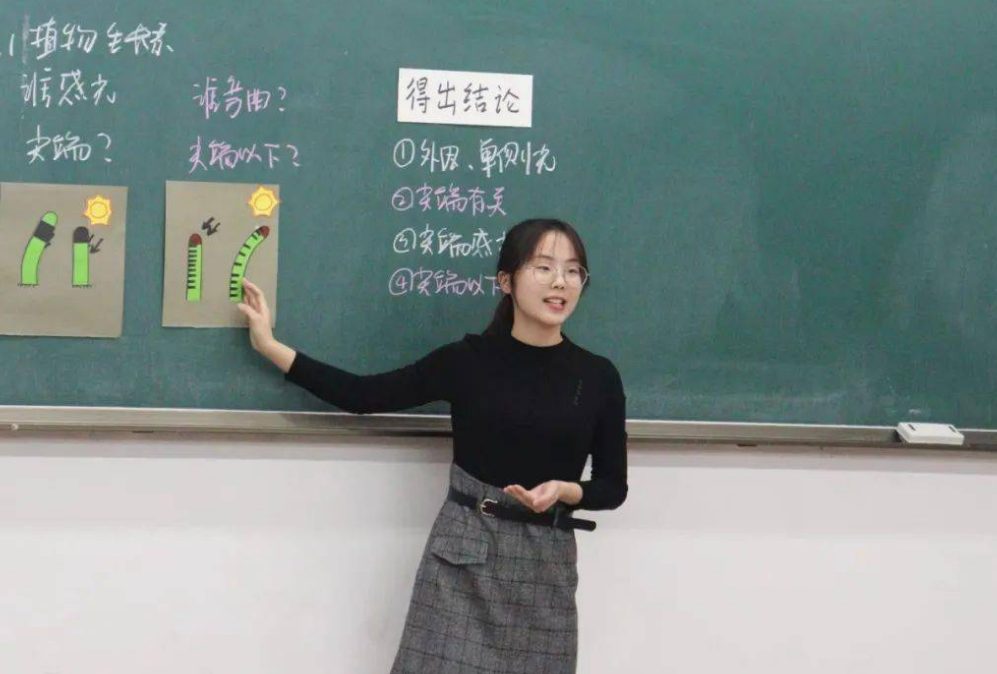 .1 植物生长素
谁感光
尖端？
谁弯曲？
尖端以下？
得出结论
①外因、单侧光
②尖端有关
③尖端感光
④尖端以下